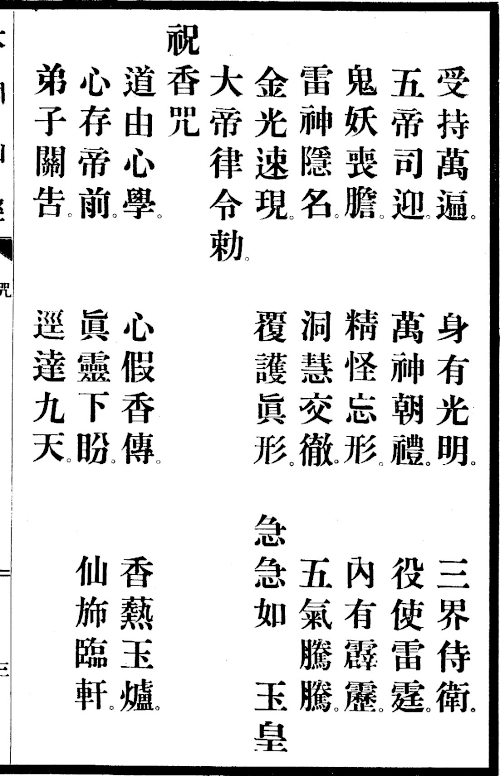 受持萬遍。身有光明。三界侍衛。
五帝司迎。萬神朝禮。役使雷霆。
鬼妖喪膽。精怪忘形。內有霹靂。
雷神隱名。洞慧交徹。五氣騰騰。
金光速現。覆護眞形。急急如 玉皇
大帝律令勅。
祝香咒
道由心學。心假香傳。香爇玉爐。
心存帝前。眞靈下盼。仙斾臨軒。
弟子關告。逕達九天。
咒
三